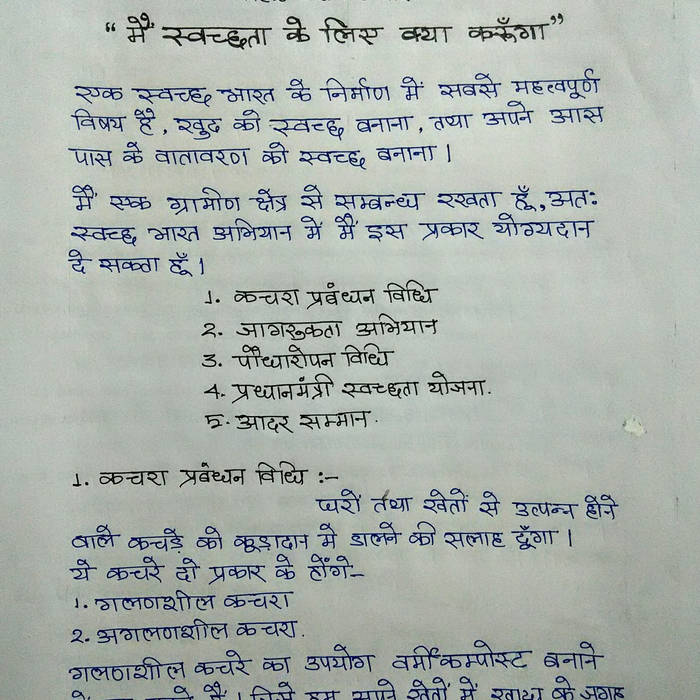 “मैं स्वच्छता के लिए क्या करूँगा”
एक स्वच्छ भारत के निर्माण में सबसे महत्वपूर्ण
विषय है, खुद को स्वच्छ बनाना, तथा अपने आस
पास के वातावरण को स्वच्छ बनाना।
मैं एक ग्रामीण क्षेत्र से सम्बन्ध रखता हूँ, अतः
स्वच्छ भारत अभियान में मैं इस प्रकार योग्यदान
दे सकता हूँ।
1. कचरा प्रबंधन विधि
2. जागरुकता अभियान
3. पौधारोपन विधि
4. प्रधानमंत्री स्वच्छता योजना.
5. आदर सम्मान.
1. कचरा प्रबंधन विधि :-
घरों तथा खेतों से उत्पन्न होने
बाले कचड़ें को कूड़ादान मे डालने की सलाह दूँगा।
ये कचरे दो प्रकार के होंगे-
1. गलणशील कचरा
2. अगलणशील कचरा.
गलणशील कचरे का उपयोग वर्मीकम्पोस्ट बनाने
हम अपने खेतों में की जगह